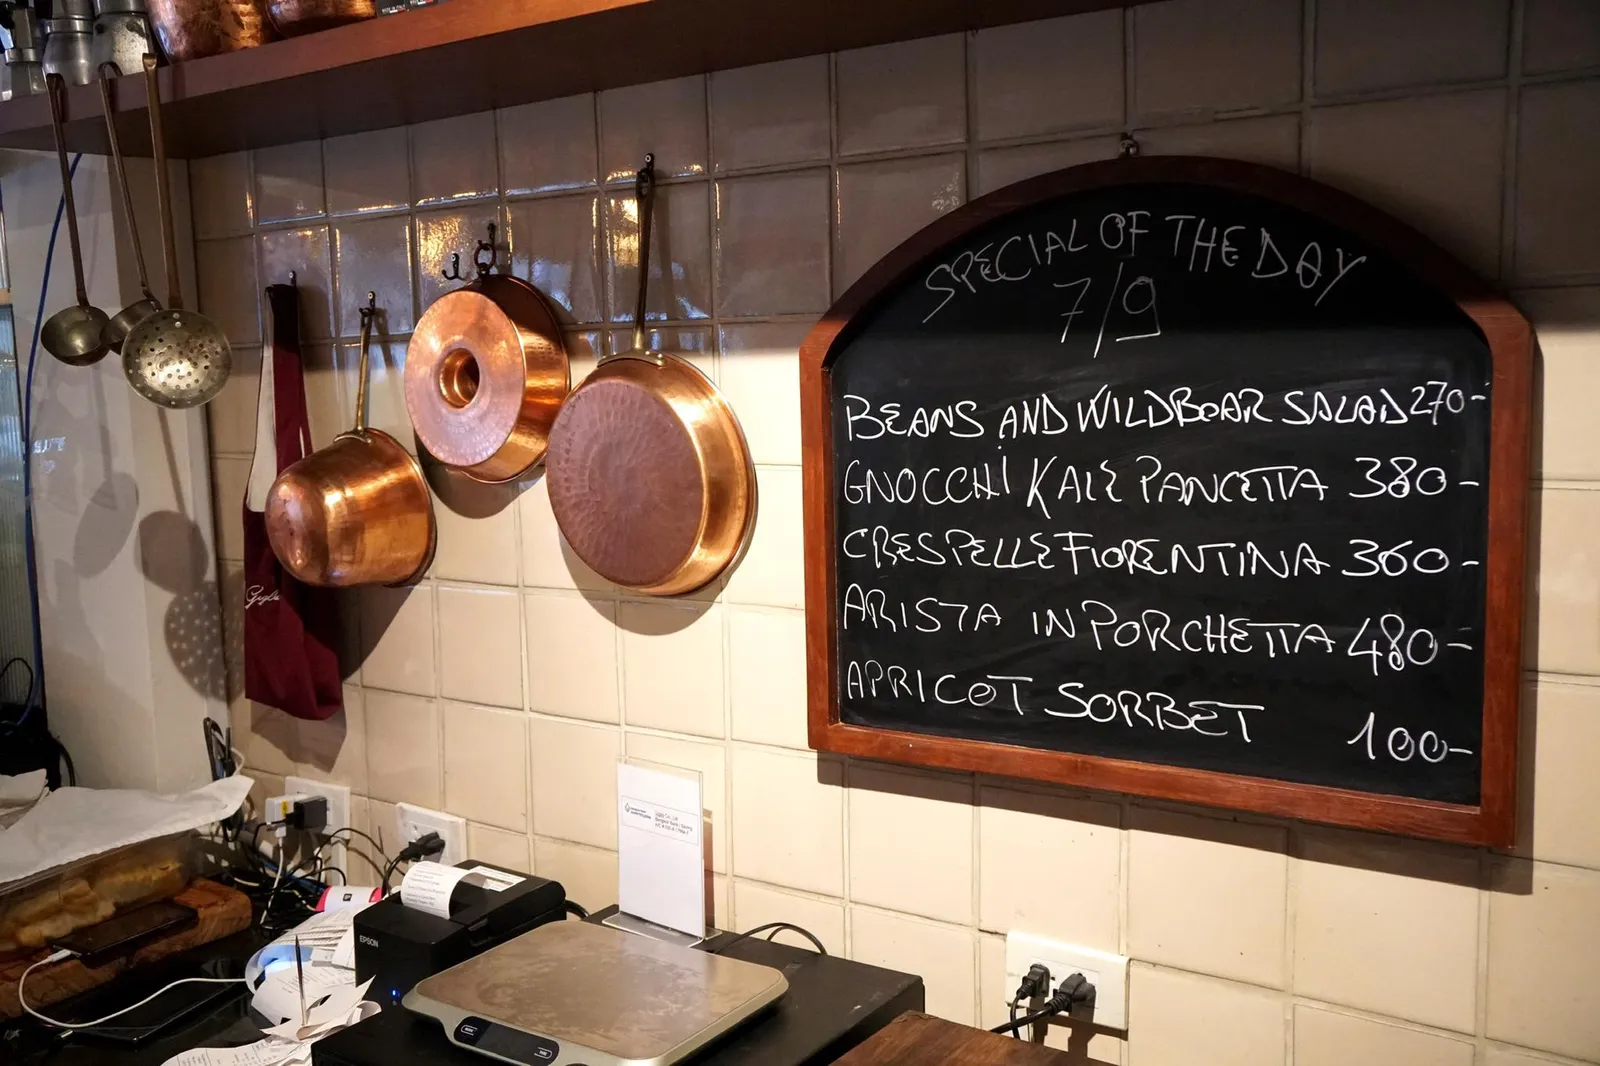 SPECIAL OF THE DAY
7/9
BEANS AND WILDBOAR SALAD 270-
GNOCCHI KALE PANCETTA 380-
CRESPELLE FIORENTINA 360-
ARISTA IN PORCHETTA 480-
APRICOT SORBET 100-
EPSON